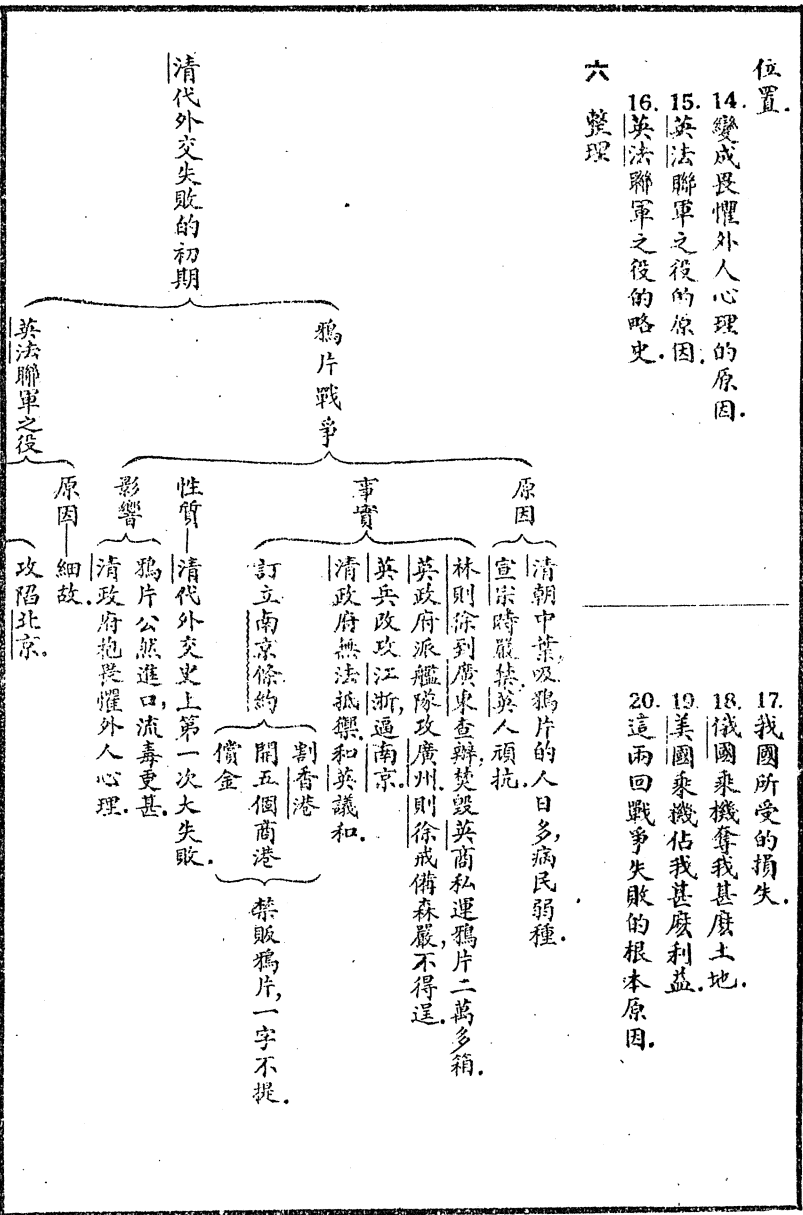 位置.
14. 變成畏懼外人心理的原因.
15. 英法聯軍之役的原因.
16. 英法聯軍之役的略史.
17. 我國所受的損失.
18. 俄國乘機奪我甚麽土地.
19. 美國乘機佔我甚麽利益.
20. 這兩回戰爭失敗的根本原因.
六 整理
清代外交失敗的初期
鴉片戰爭
原因
清朝中葉,吸鴉片的人日多,病民弱種.
宣宗時嚴禁,英人頑抗.
事實
林則徐到廣東查辦,焚毀英商私運鴉片二萬多箱.
英政府派艦隊攻廣州,則徐戒備森嚴,不得逞.
英兵改攻江浙,逼南京.
清政府無法抵禦,和英議和.
訂立南京條約
割香港
開五個商港
償金
禁販鴉片,一字不提.
性質—清代外交史上第一次大失敗.
影響
鴉片公然進口,流毒更甚.
清政府抱畏懼外人心理.
英法聯軍之役
原因—細故.
攻陷北京.